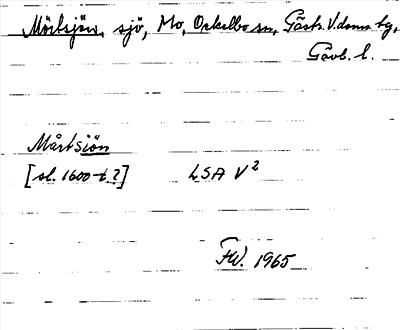 Mörtsjön, sjö, Mo, Ockelbo sn, Gästr. V. doms. tg,
Gävb. l.
Mårtsiön
[sl. 1600-t.?] LSA V²
FW. 1965